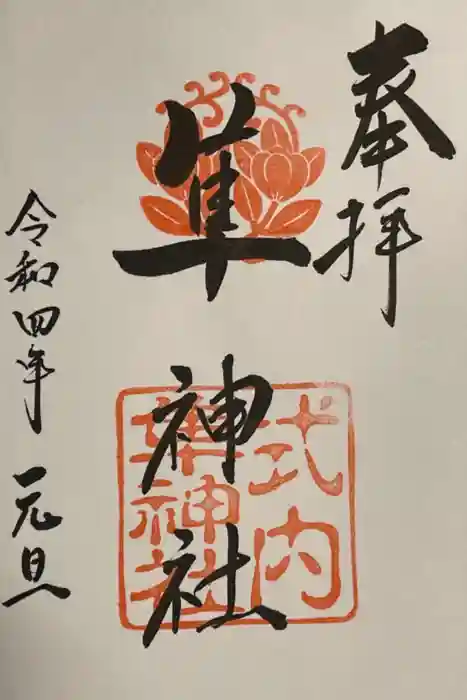 奉拝
隼神社
式内
隼神社
令和四年 元旦